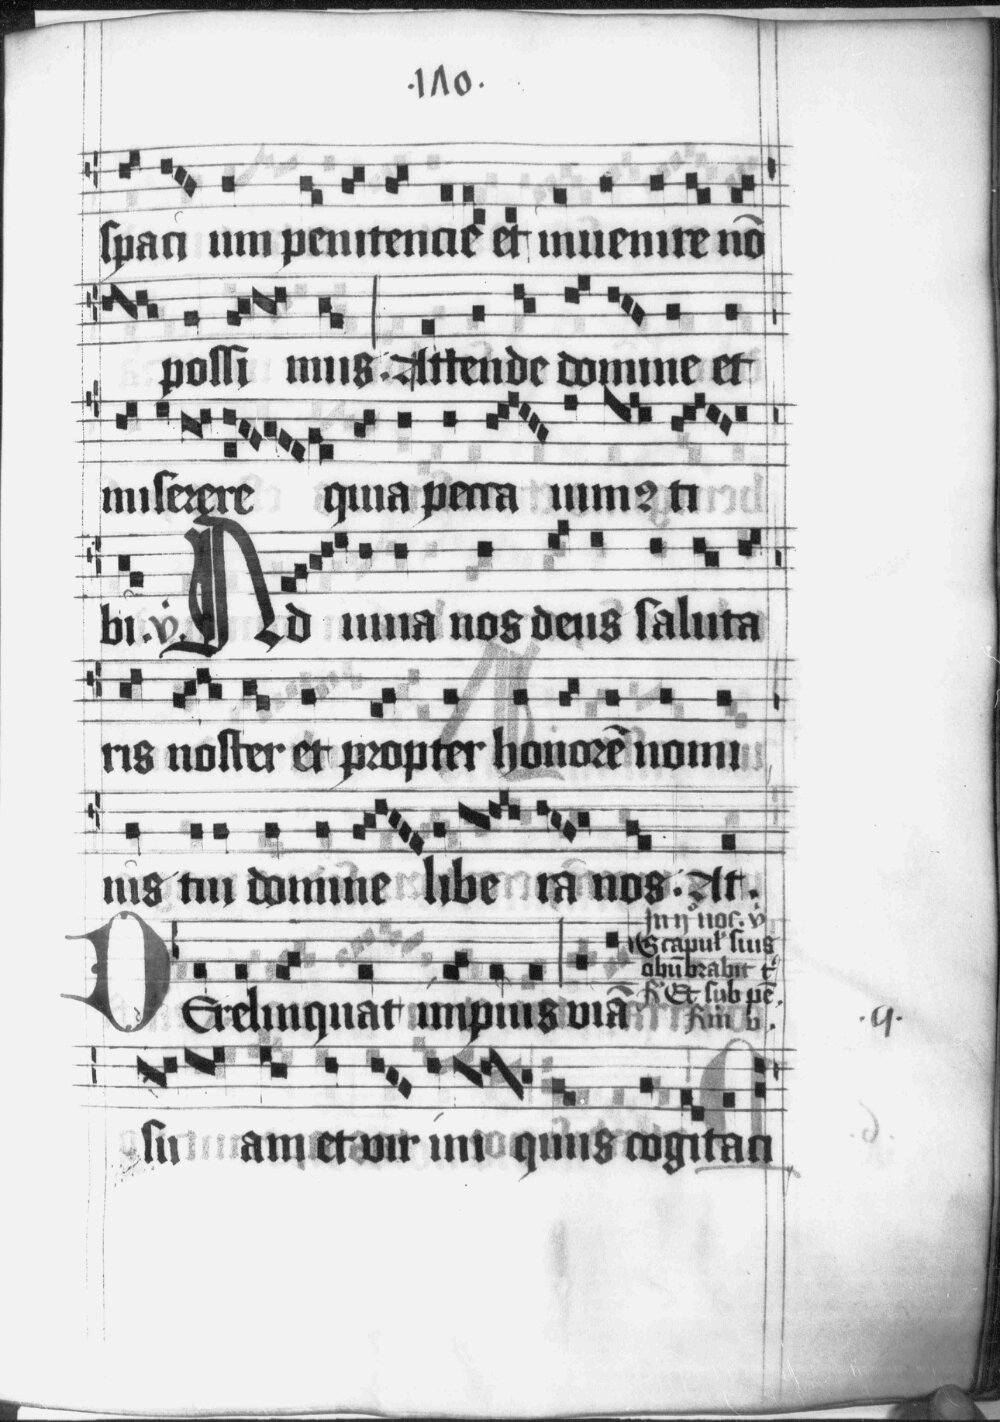 ·1Λ0·
spaci um penitencie et inuenire nō
possi mus. Attende domine et
miserere quia pecca uimꝰ ti
bi. v̇. Ad iuua nos deus saluta
ris noster et propter honorē nomi
nis tui domine libe ra nos. At.
In ij noc. v̇
Scapul' suis
obūbrabit t'
Et sub pē.
Derelinquat impius viā
·9·
su am et vir ini quus cogitaci